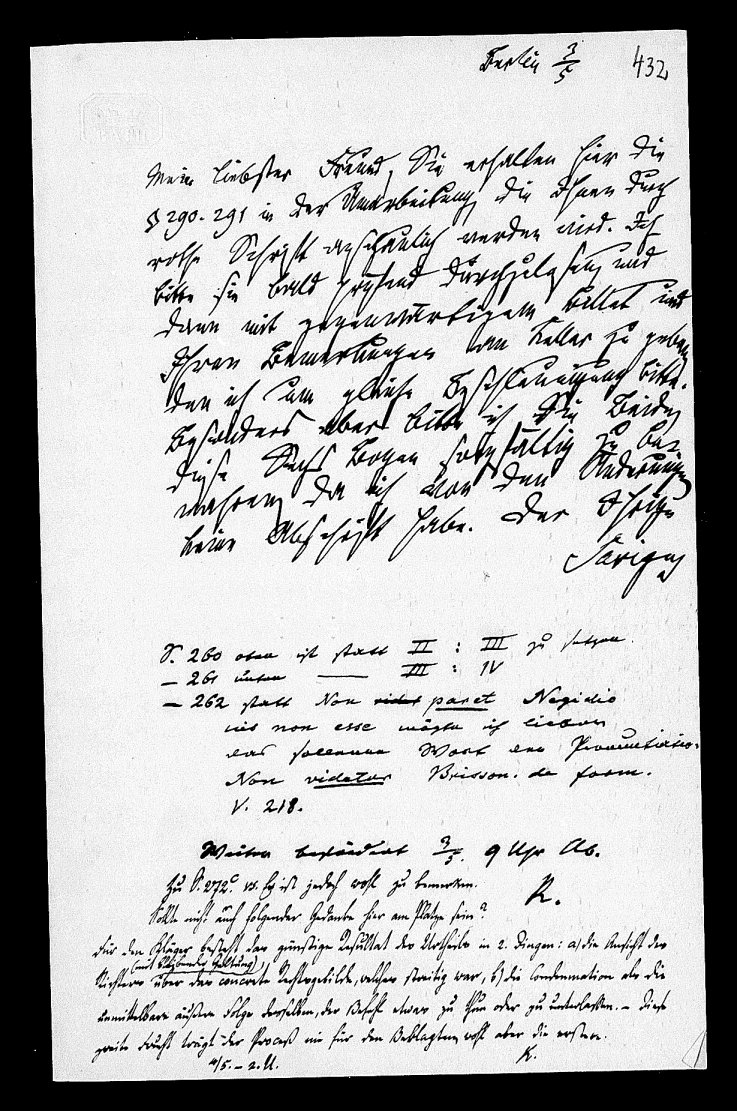 Berlin 3/5
432
Mein liebster Freund, Sie erhalten hier die
§ 290. 291 in der Umarbeitung, die Ihnen durch
rothe Schrift anschaulich werden wird. Ich
bitte sie bald prüfend durchzulesen, und
dann mit gegenwärtigem Billet und
Ihren Bemerkungen an Keller zu geben,
den ich um gleiche Beschleunigung bitte.
Besonders aber bitte ich Sie Beide,
diese Sechs Bogen sorgfältig zu be-
wahren, da ich von den Änderungen
keine Abschrift habe. Der Ihrige
Savigny
S. 260 oben ist statt II : III zu setzen.
— 261 unten —— III : IV
— 262 statt Non videt paret Negidio
ius non esse möchte ich lieber
das sollenne Wort der Pronuntiatio:
Non videtur Brisson. de form.
V. 218.
Weiter befördert 3/5. 9 Uhr Ab.
R.
Zu S. 272c. ist jedoch wohl zu bemerken.
Sollte nicht auch folgender Gedanke hier am Platze sein?
Für den Kläger besteht das günstige Resultat des Urtheils in 2. Dingen: a) die Ansicht des
(mit Geltung)
Richters über das concrete Rechtsgebilde, welches streitig war, b) die Condemnation als die
unmittelbare äußere Folge derselben, der Befehl etwas zu thun oder zu unterlassen. – Diese
zweite Frucht trägt der Proceß nie für den Beklagten, wohl aber die erstere.
4/5. – 2. U.
K.